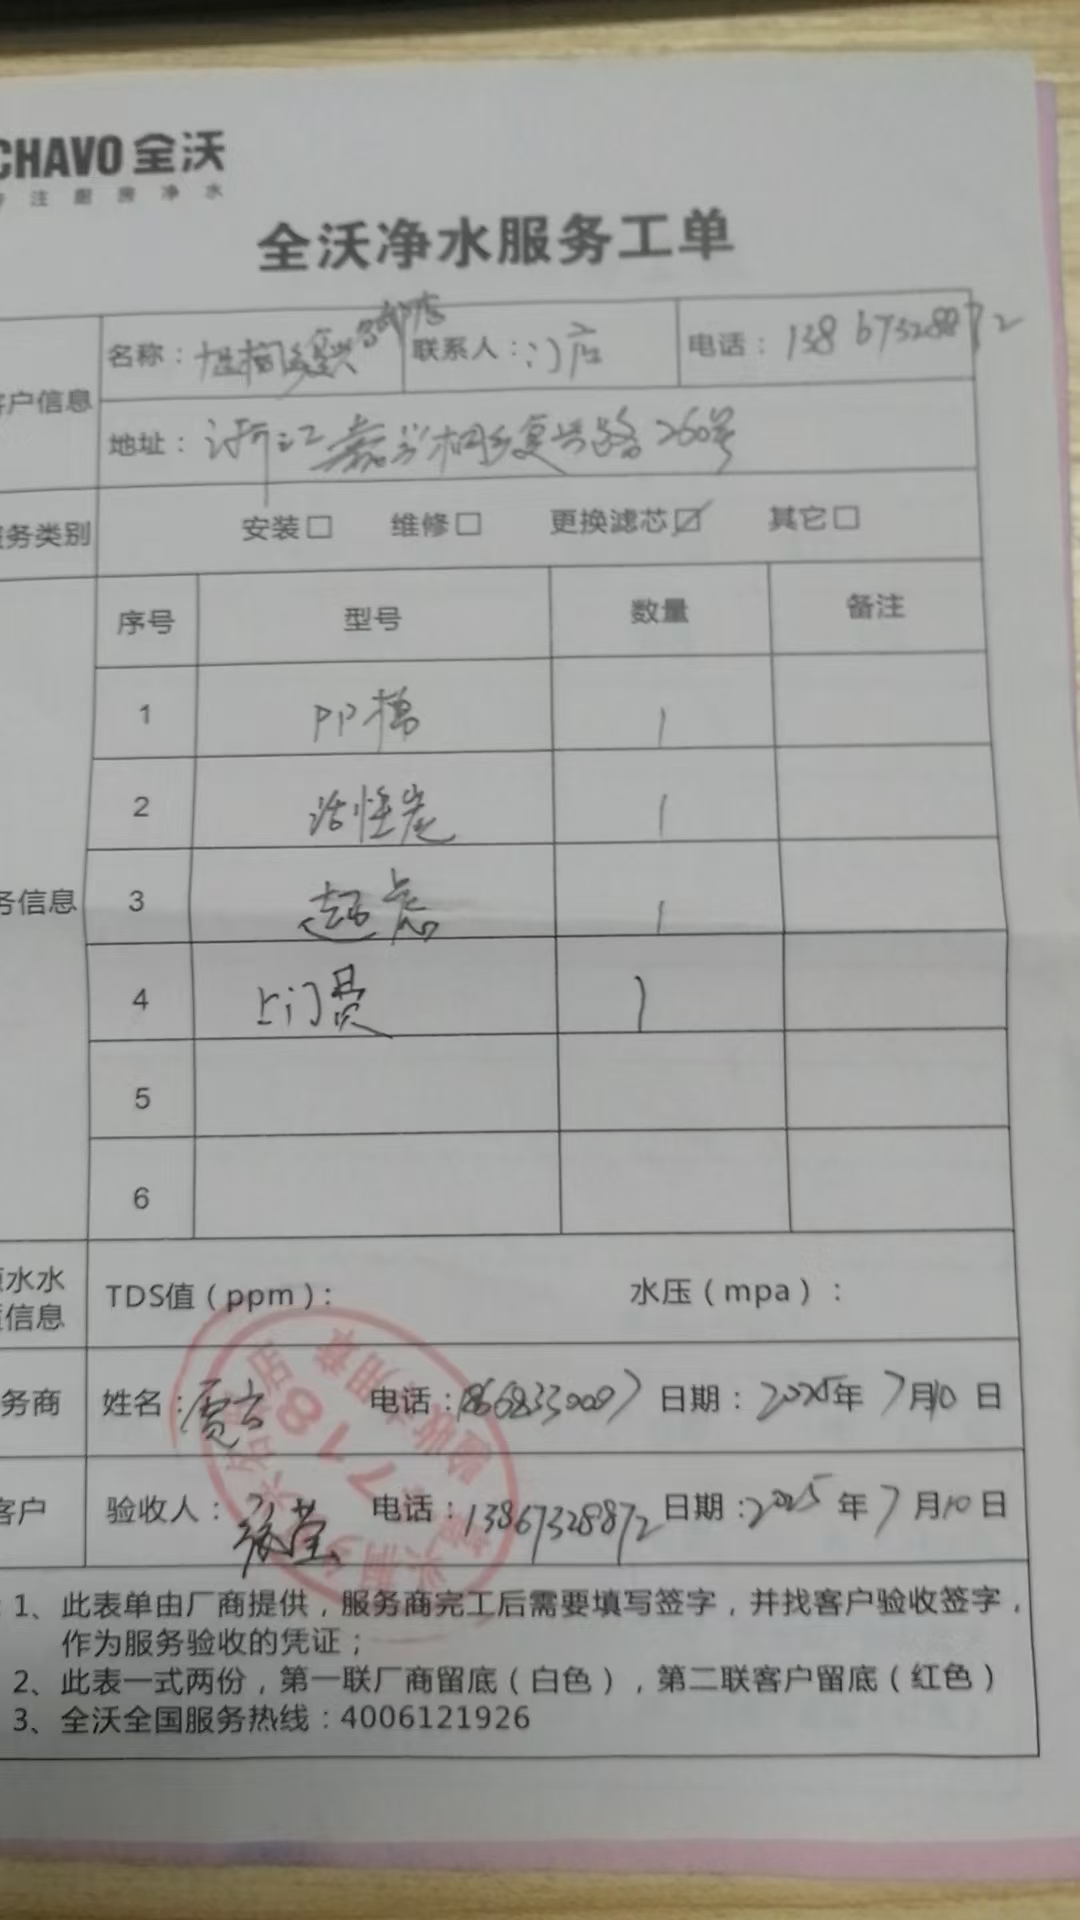 CHAVO 全沃
注 厨 房 净 水
全沃净水服务工单
客户信息
名称：桐乡复兴路店
联系人：门店
电话：13867328872
地址：浙江嘉兴桐乡复兴路260号
服务类别
安装□ 维修□ 更换滤芯☑ 其它□
序号 型号 数量 备注
1 PP棉 1
2 活性炭 1
务信息
3 超虑 1
4 上门费 1
5
6
水水
信息
TDS值（ppm）： 水压（mpa）：
务商
姓名： 电话：18668330007 日期：2025年7月10日
客户
验收人： 电话：13867328872 日期：2025年7月10日
1、此表单由厂商提供，服务商完工后需要填写签字，并找客户验收签字，
作为服务验收的凭证；
2、此表一式两份，第一联厂商留底（白色），第二联客户留底（红色）
3、全沃全国服务热线：4006121926